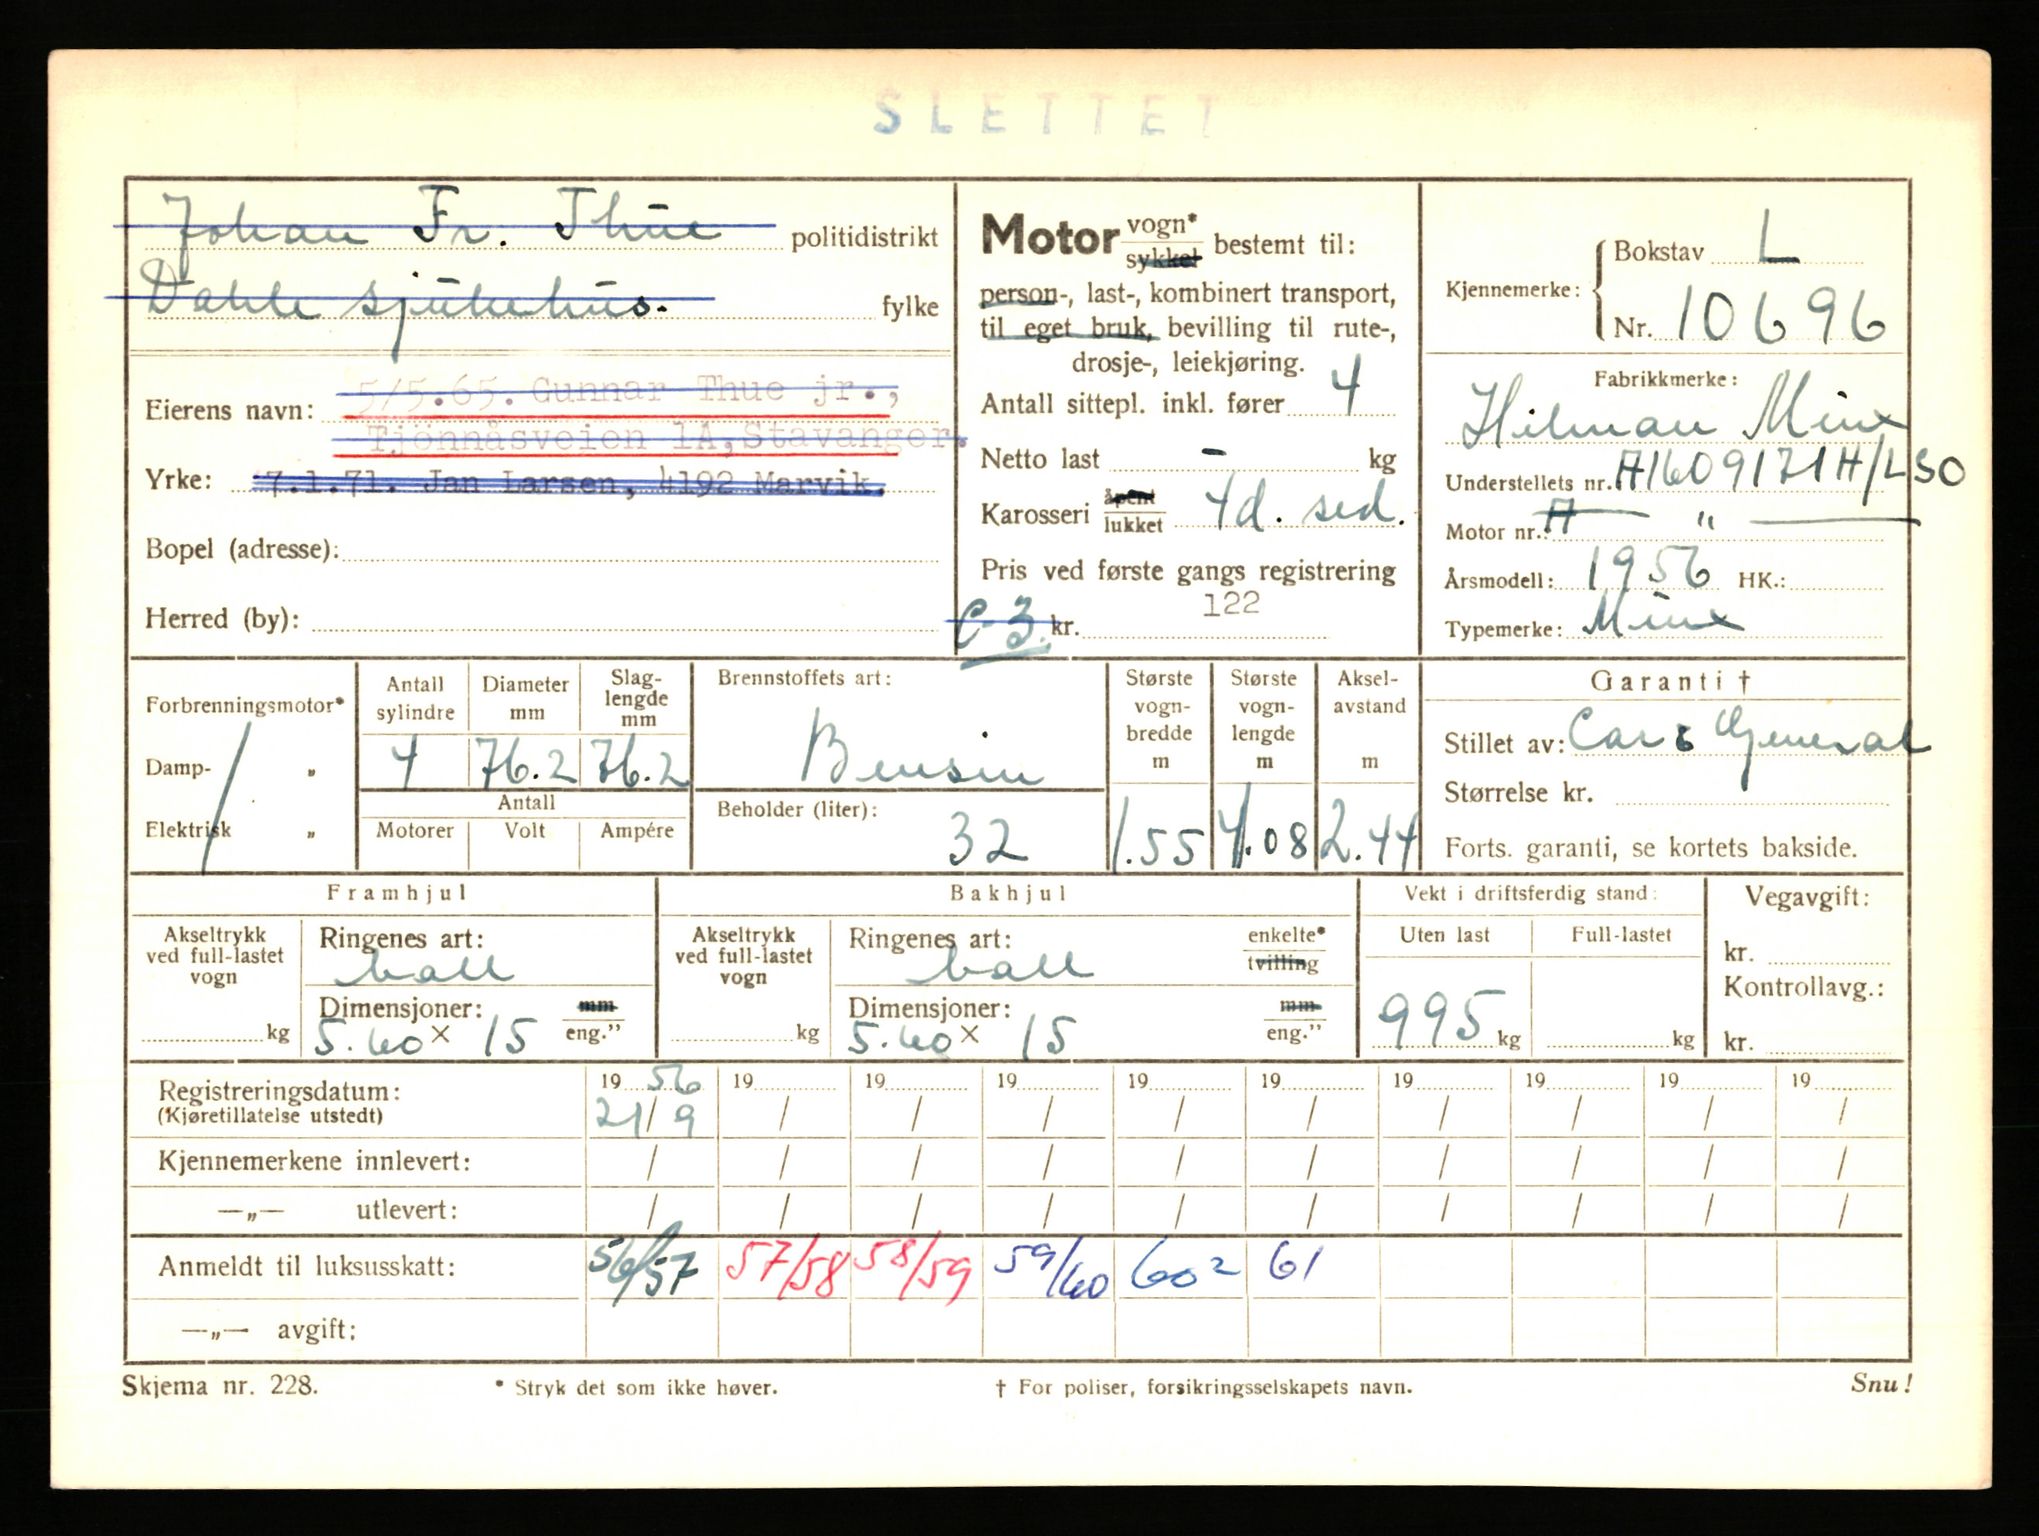 SLETTET
Johan Fr. Thue politidistrikt
Dahle sjukehus. fylke
Eierens navn: 5/5.65. Gunnar Thue jr.,
Tjönnåsveien 1A, Stavanger.
Yrke: 7.1.71. Jan Larsen, 4192 Marvik.
Bopel (adresse):
Herred (by):
Motor vogn* sykkel bestemt til:
person-, last-, kombinert transport,
til eget bruk, bevilling til rute-,
drosje-, leiekjøring.
Antall sittepl. inkl. fører 4
Netto last - kg
Karosseri åpent lukket 4d. sed.
Pris ved første gangs registrering
122
C-3 kr.
Kjennemerke: Bokstav L
Nr. 10696
Fabrikkmerke:
Hilman Minx
Understellets nr. A1609171H/LSO
Motor nr.: A "
Årsmodell: 1956 HK.:
Typemerke: Minx
Forbrenningsmotor*
Damp- "
Elektrisk "
Antall sylindre
Diameter mm
Slaglengde mm
4 76.2 76.2
Antall
Motorer Volt Ampére
Brennstoffets art:
Bensin
Beholder (liter):
32
Største vogn-bredde m
1.55
Største vogn-lengde m
4.08
Aksel-avstand m
2.44
Garanti †
Stillet av: Car & General
Størrelse kr.
Forts. garanti, se kortets bakside.
Framhjul
Akseltrykk ved full-lastet vogn
kg
Ringenes art:
ball
Dimensjoner: mm
5.60 x 15 eng."
Bakhjul
Akseltrykk ved full-lastet vogn
kg
Ringenes art: enkelte*
ball tvilling
Dimensjoner: mm
5.60 x 15 eng."
Vekt i driftsferdig stand:
Uten last Full-lastet
995 kg kg
Vegavgift:
kr.
Kontrollavg.:
kr.
Registreringsdatum: 19 56 19 19 19 19 19 19 19 19 19
(Kjøretillatelse utstedt) 21/9 / / / / / / / / /
Kjennemerkene innlevert: / / / / / / / / / /
—„— utlevert: / / / / / / / / / /
Anmeldt til luksusskatt: 56/57 57/58 58/59 59/60 60² 61
—„— avgift:
Skjema nr. 228. * Stryk det som ikke høver. † For poliser, forsikringsselskapets navn. Snu!